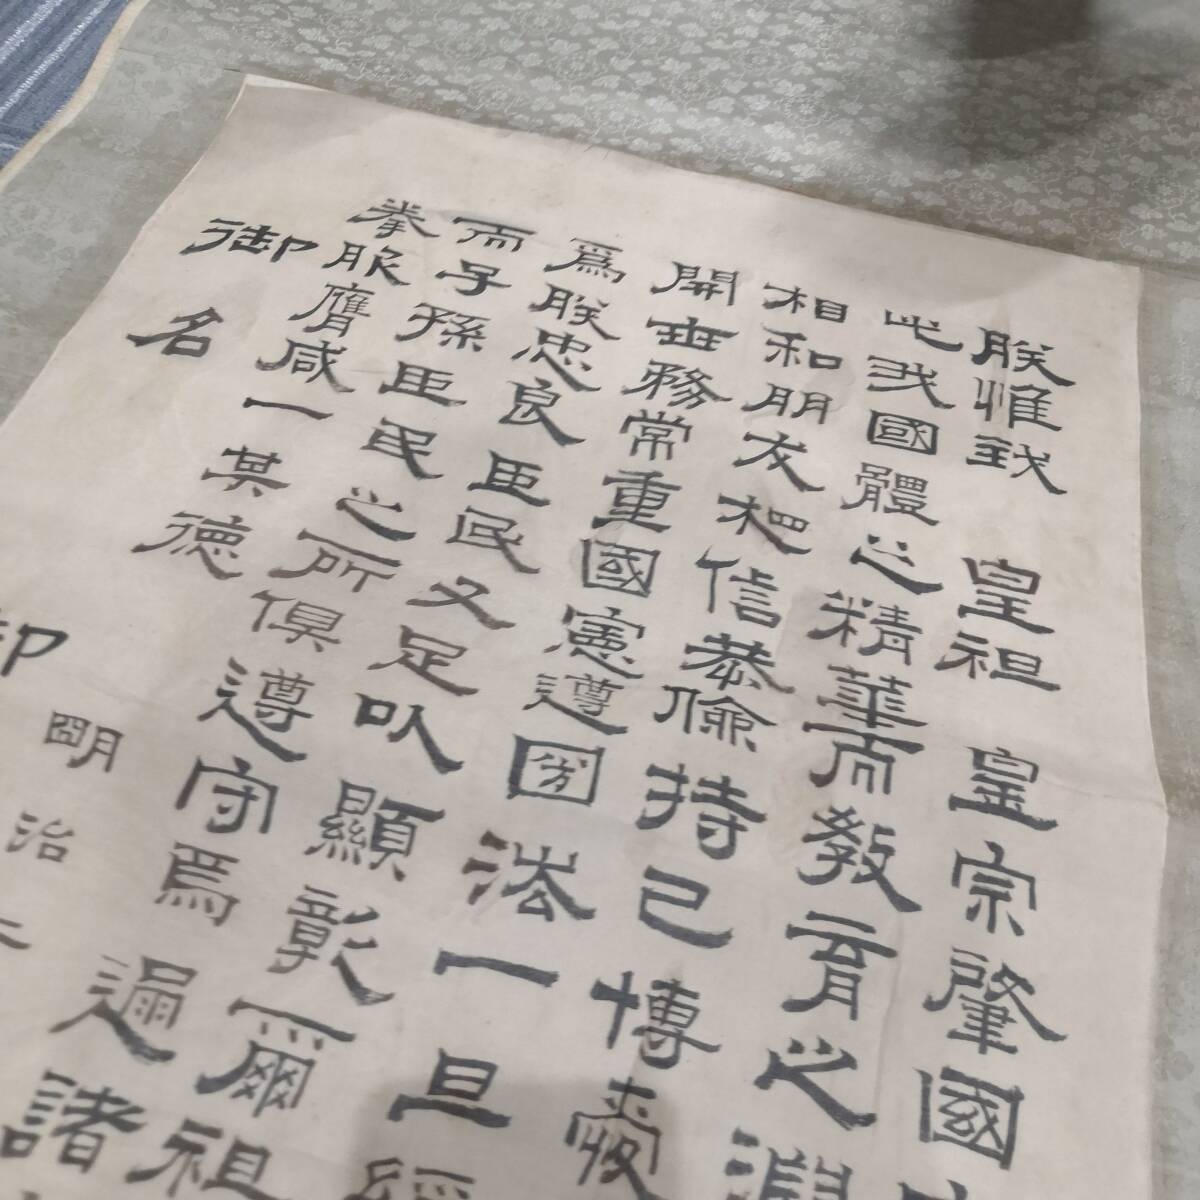 朕惟我 皇祖 皇宗肇國
此我國體之精華而教育之淵
相和朋友相信恭儉持己博愛
開世務常重國憲遵圀法一旦
爲朕忠良臣民又足以顯彰爾祖
而子孫臣民之所俱遵守焉 諸
拳服膺咸一其德
御名
御
朙治二